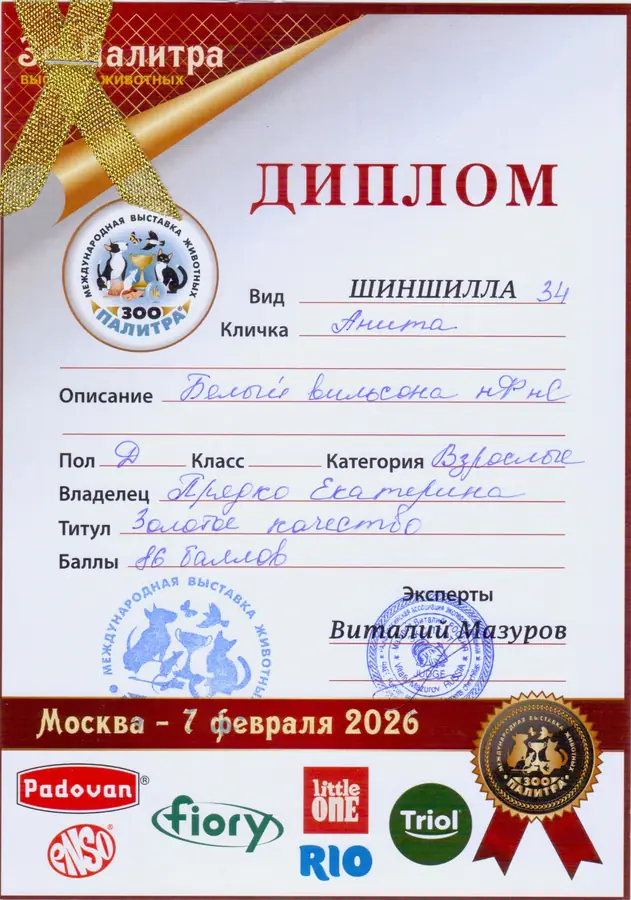 ЗооПалитра
ВЫСТАВКА ЖИВОТНЫХ
ДИПЛОМ
МЕЖДУНАРОДНАЯ ВЫСТАВКА ЖИВОТНЫХ
ЗОО
ПАЛИТРА
Вид ШИНШИЛЛА 34
Кличка Анита
Описание Белый вильсона нФнС
Пол Д Класс Категория Взрослые
Владелец Прядко Екатерина
Титул Золотое качество
Баллы 86 баллов
МЕЖДУНАРОДНАЯ ВЫСТАВКА ЖИВОТНЫХ
Эксперты
Виталий Мазуров
JUDGE
Vitaly Mazurov RUSSIA
Москва - 7 февраля 2026
МЕЖДУНАРОДНАЯ ВЫСТАВКА ЖИВОТНЫХ
ЗОО
ПАЛИТРА
Padovan®
ENSO®
fiory
little ONE
RIO
Triol